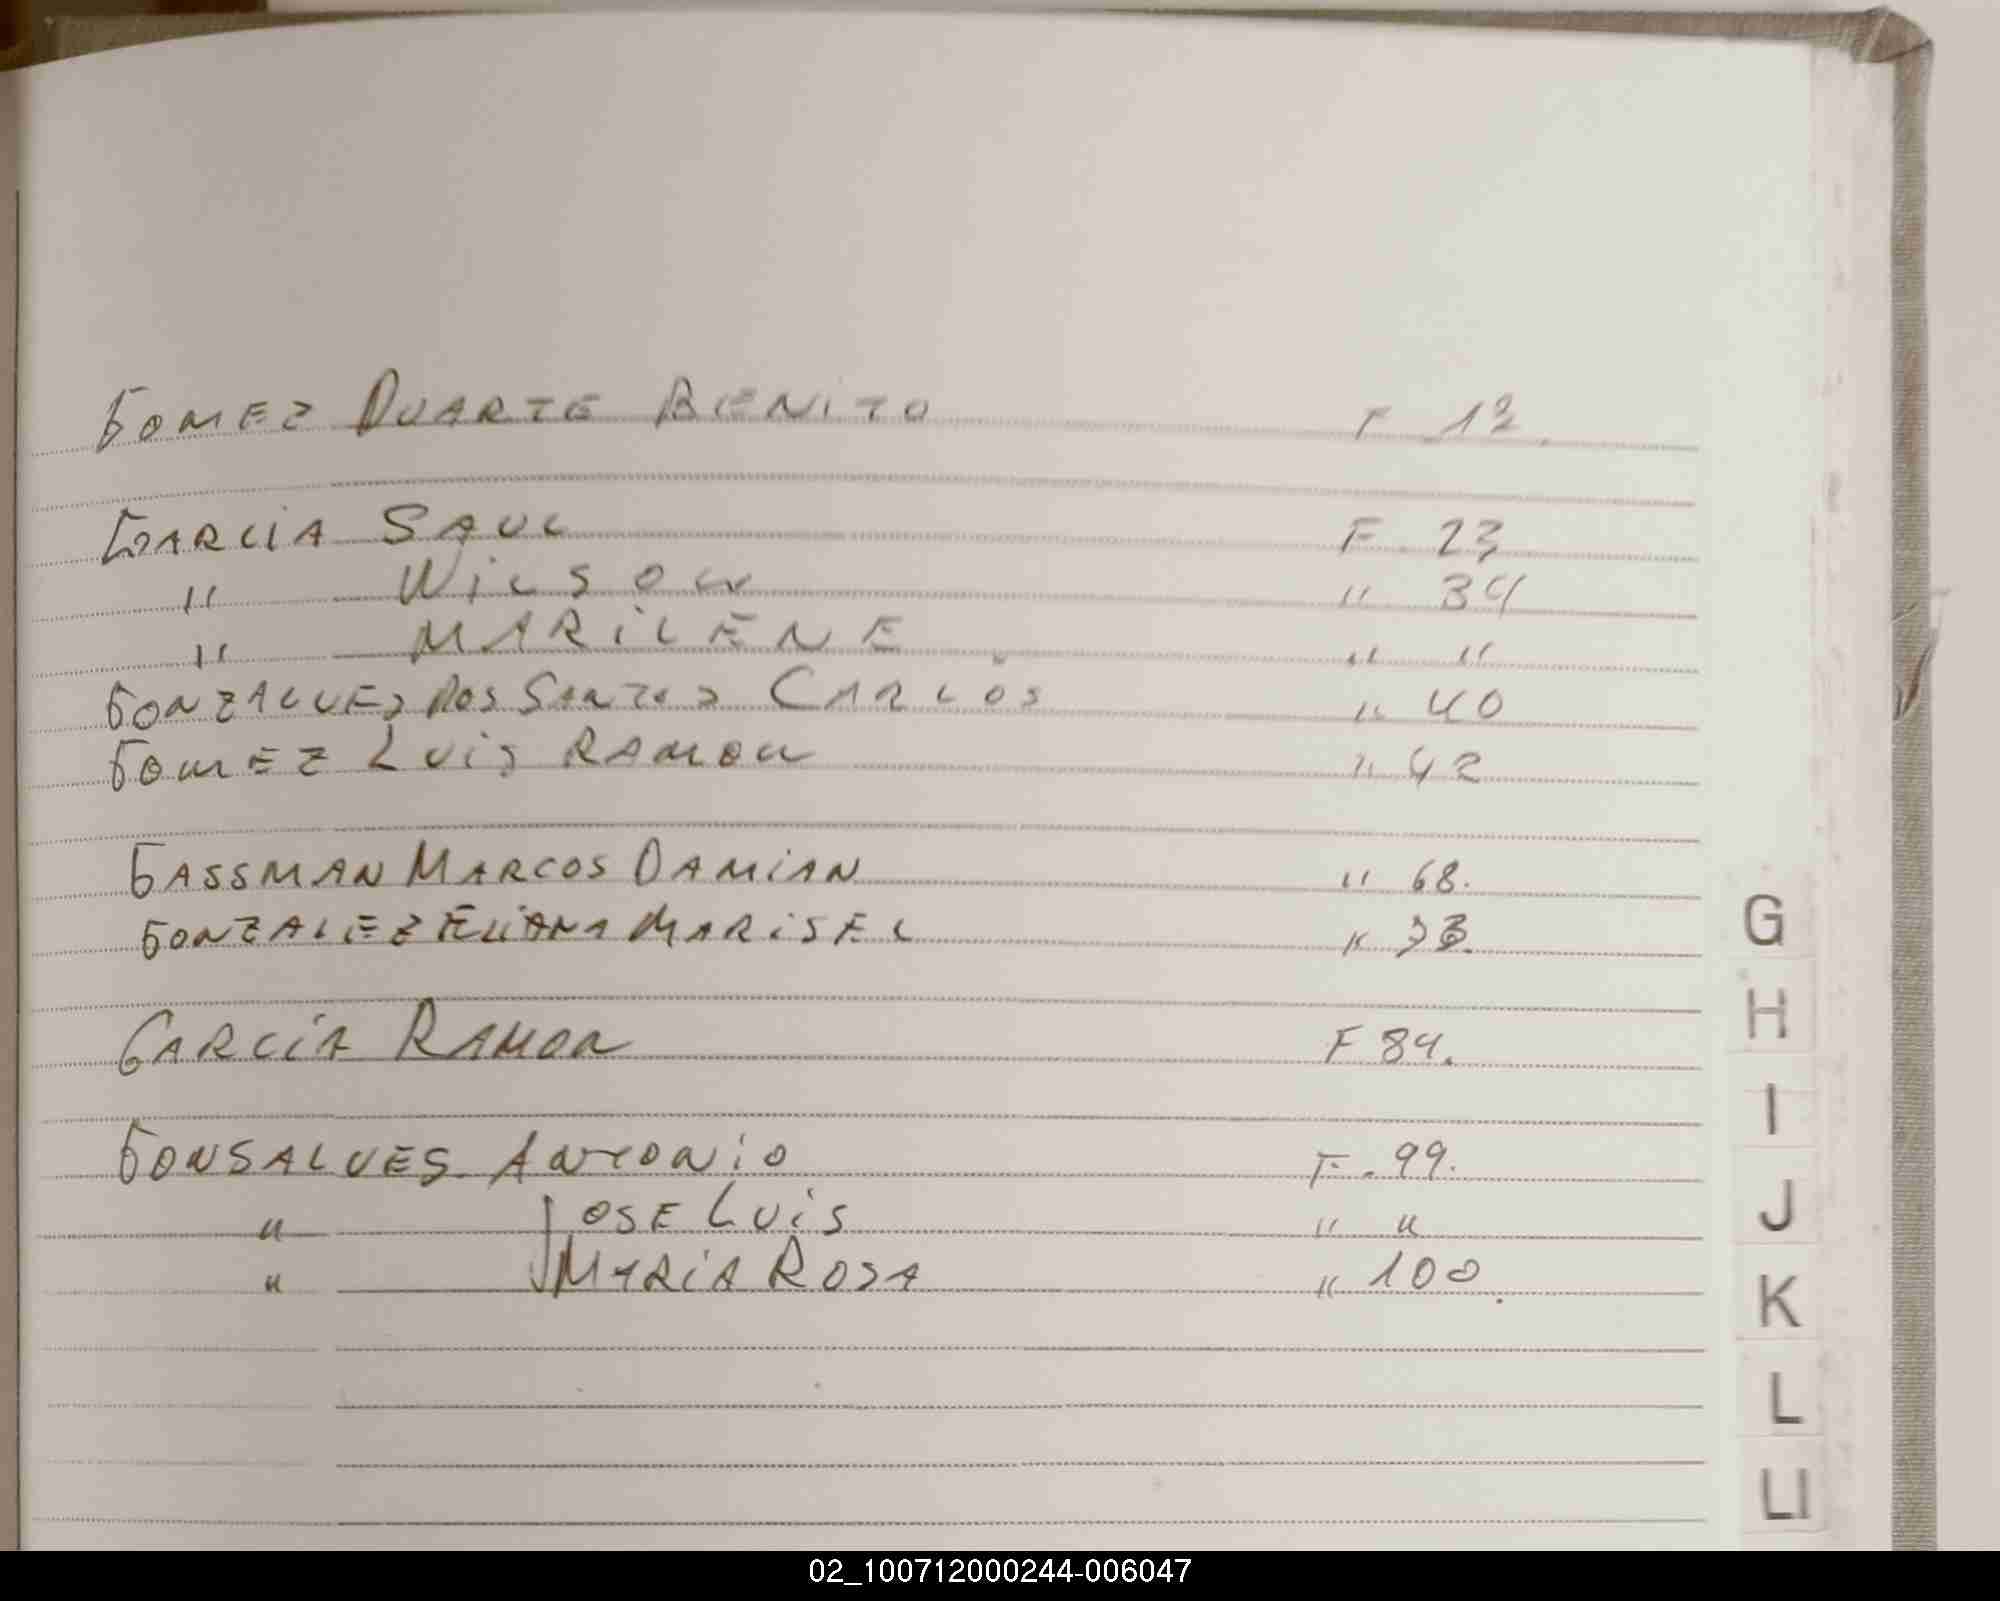 GOMEZ DUARTE BENITO F 12.
GARCIA SAUL F 23
" WILSON " 34
" MARILENE " "
GONZALVES DOS SANTOS CARLOS " 40
GOMEZ LUIS RAMON " 42
GASSMAN MARCOS DAMIAN " 68.
GONZALEZ ELIANA MARISEL "
GARCIA RAMON F 84.
GONSALVES ANTONIO F. 99.
" JOSE LUIS " "
" MARIA ROSA " 100.
G
H
I
J
K
L
LI
02_100712000244-006047